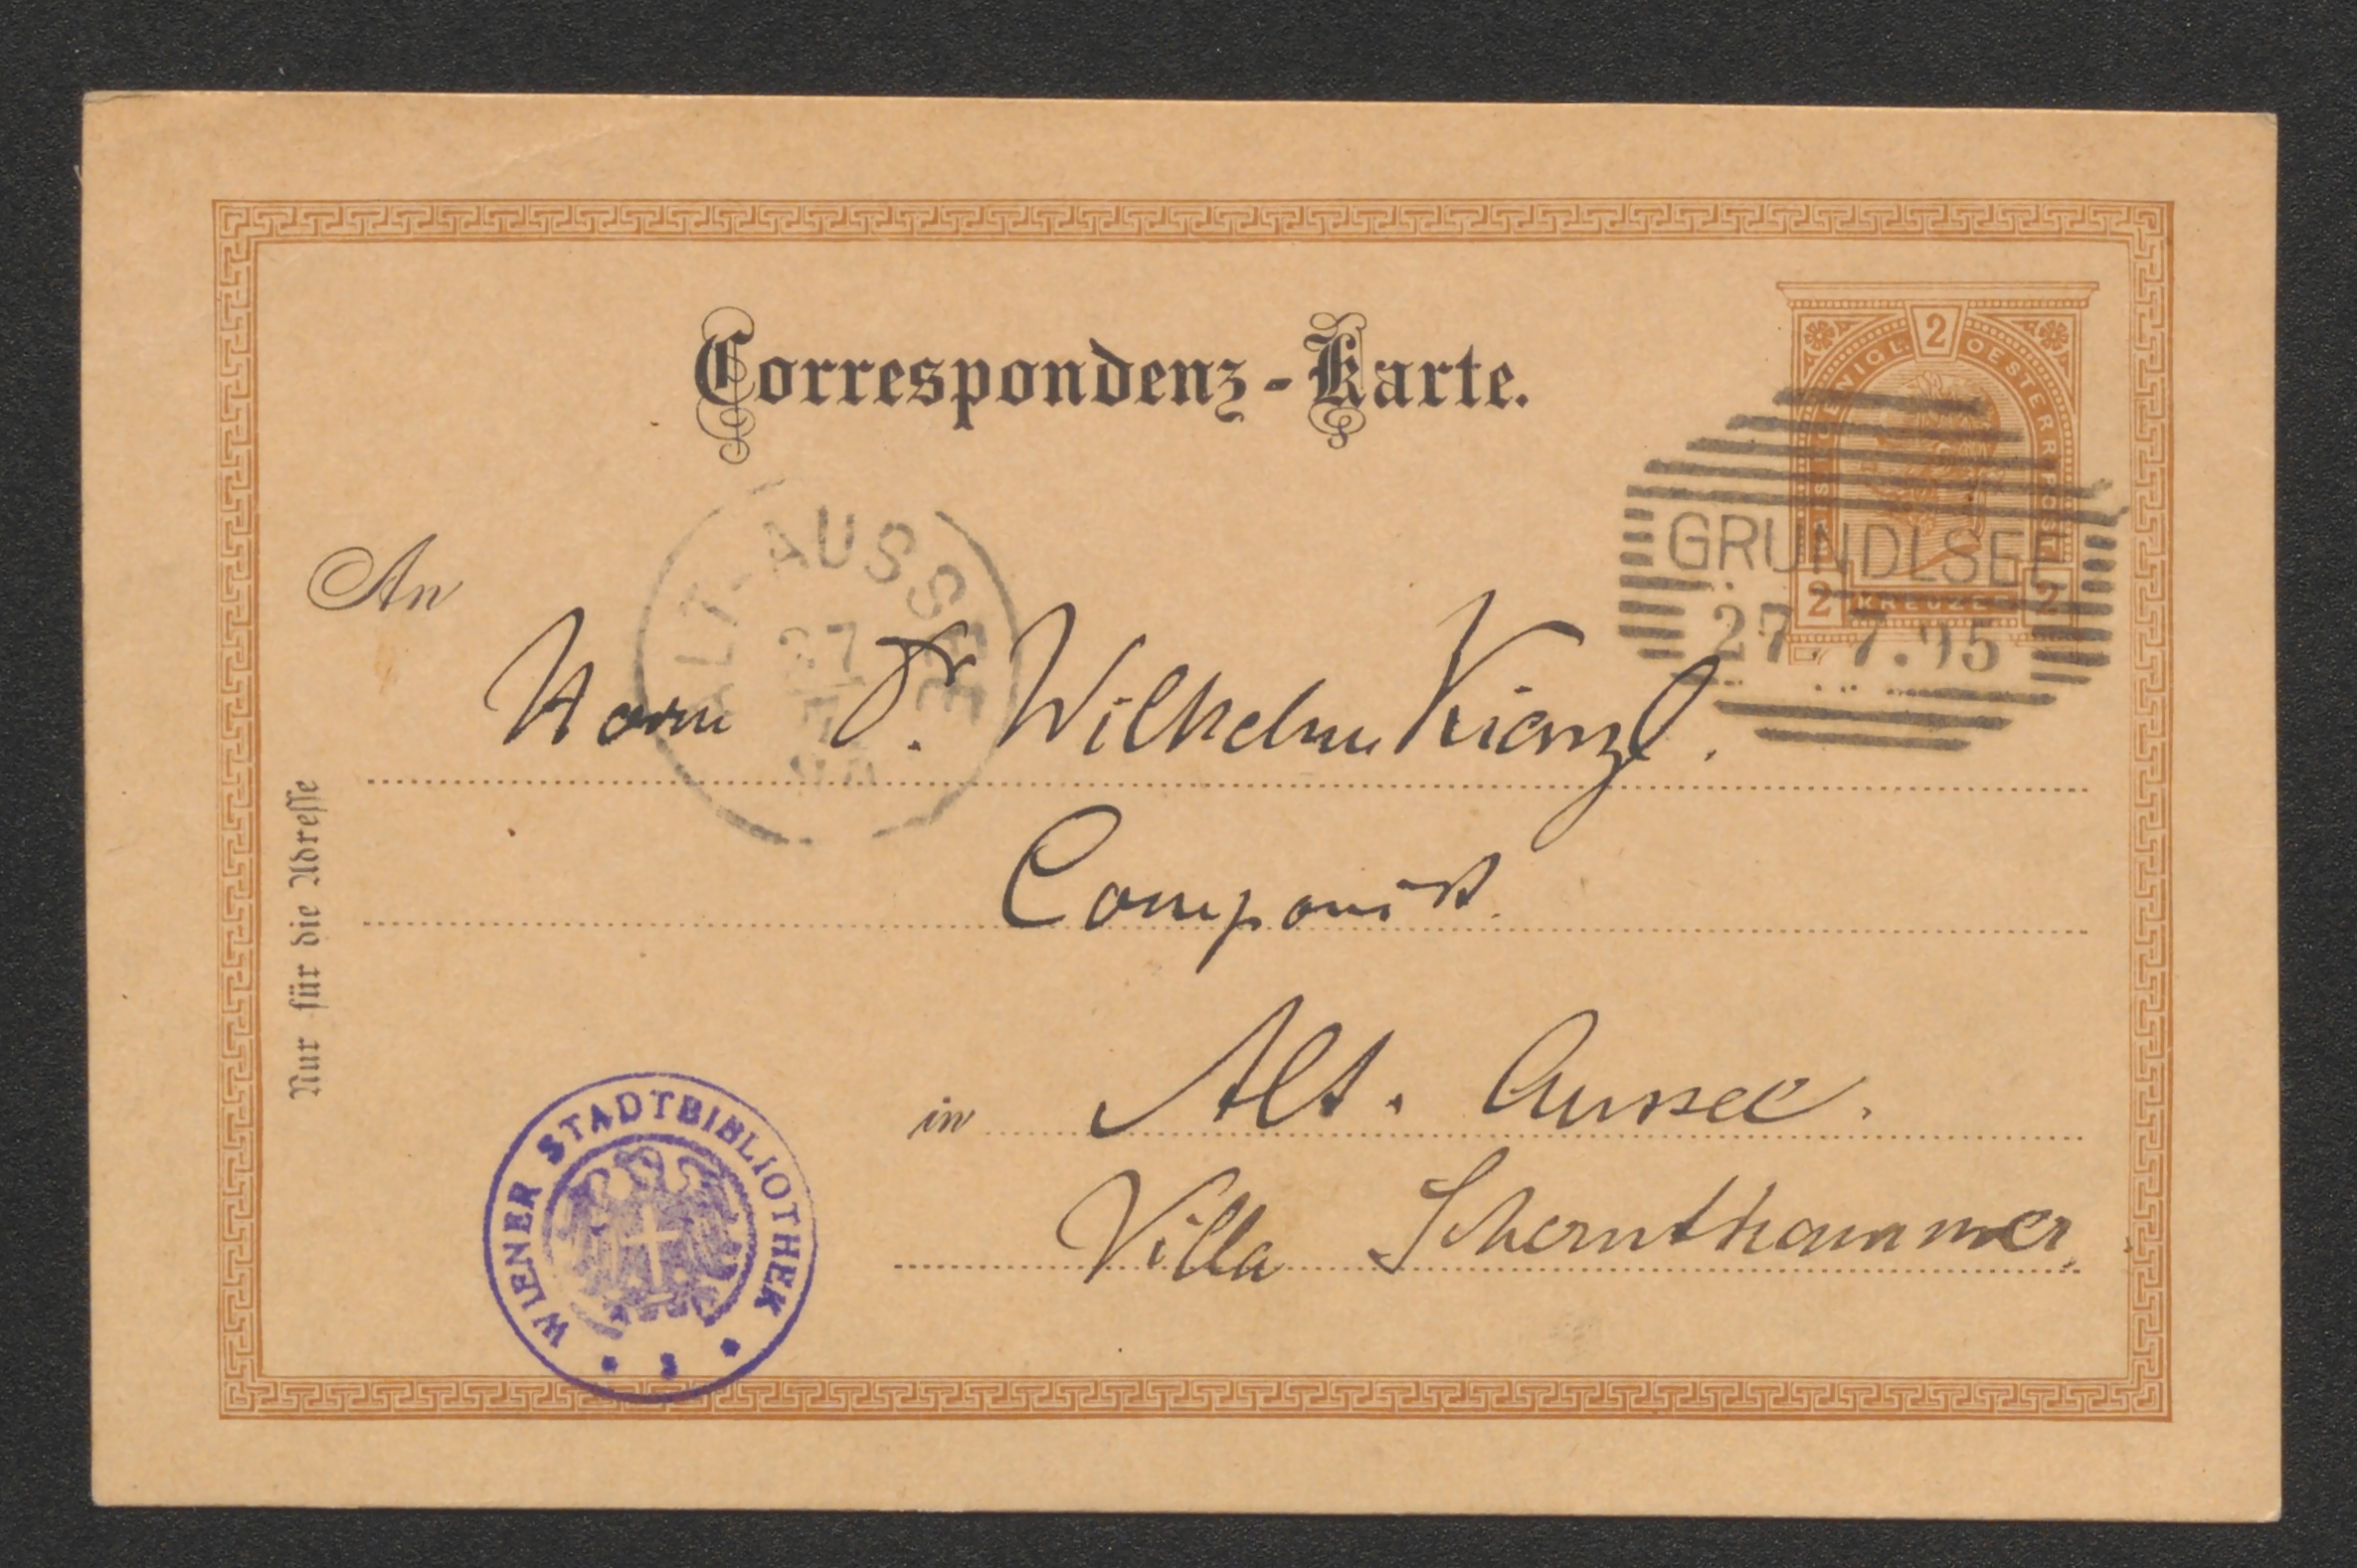 Correspondenz-Karte.
2
KÖNIGL. OESTERR. POST
2 KREUZER 2
GRUNDLSEE
27.7.95
ALT-AUSSEE
27
7
An
Herrn Dr. Wilhelm Kienzl.
Componist.
in Alt. Aussee.
Villa Schernthanner,
Nur für die Adresse
WIENER STADTBIBLIOTHEK
* S *